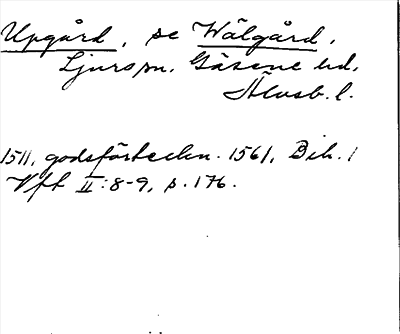 Upgård, se Wälgård,
Ljurs sn. Gäsene hd,
Älvsb. l.
1511, godsförteckn. 1561, Bih. 1
Vft II:8-9, s. 176.